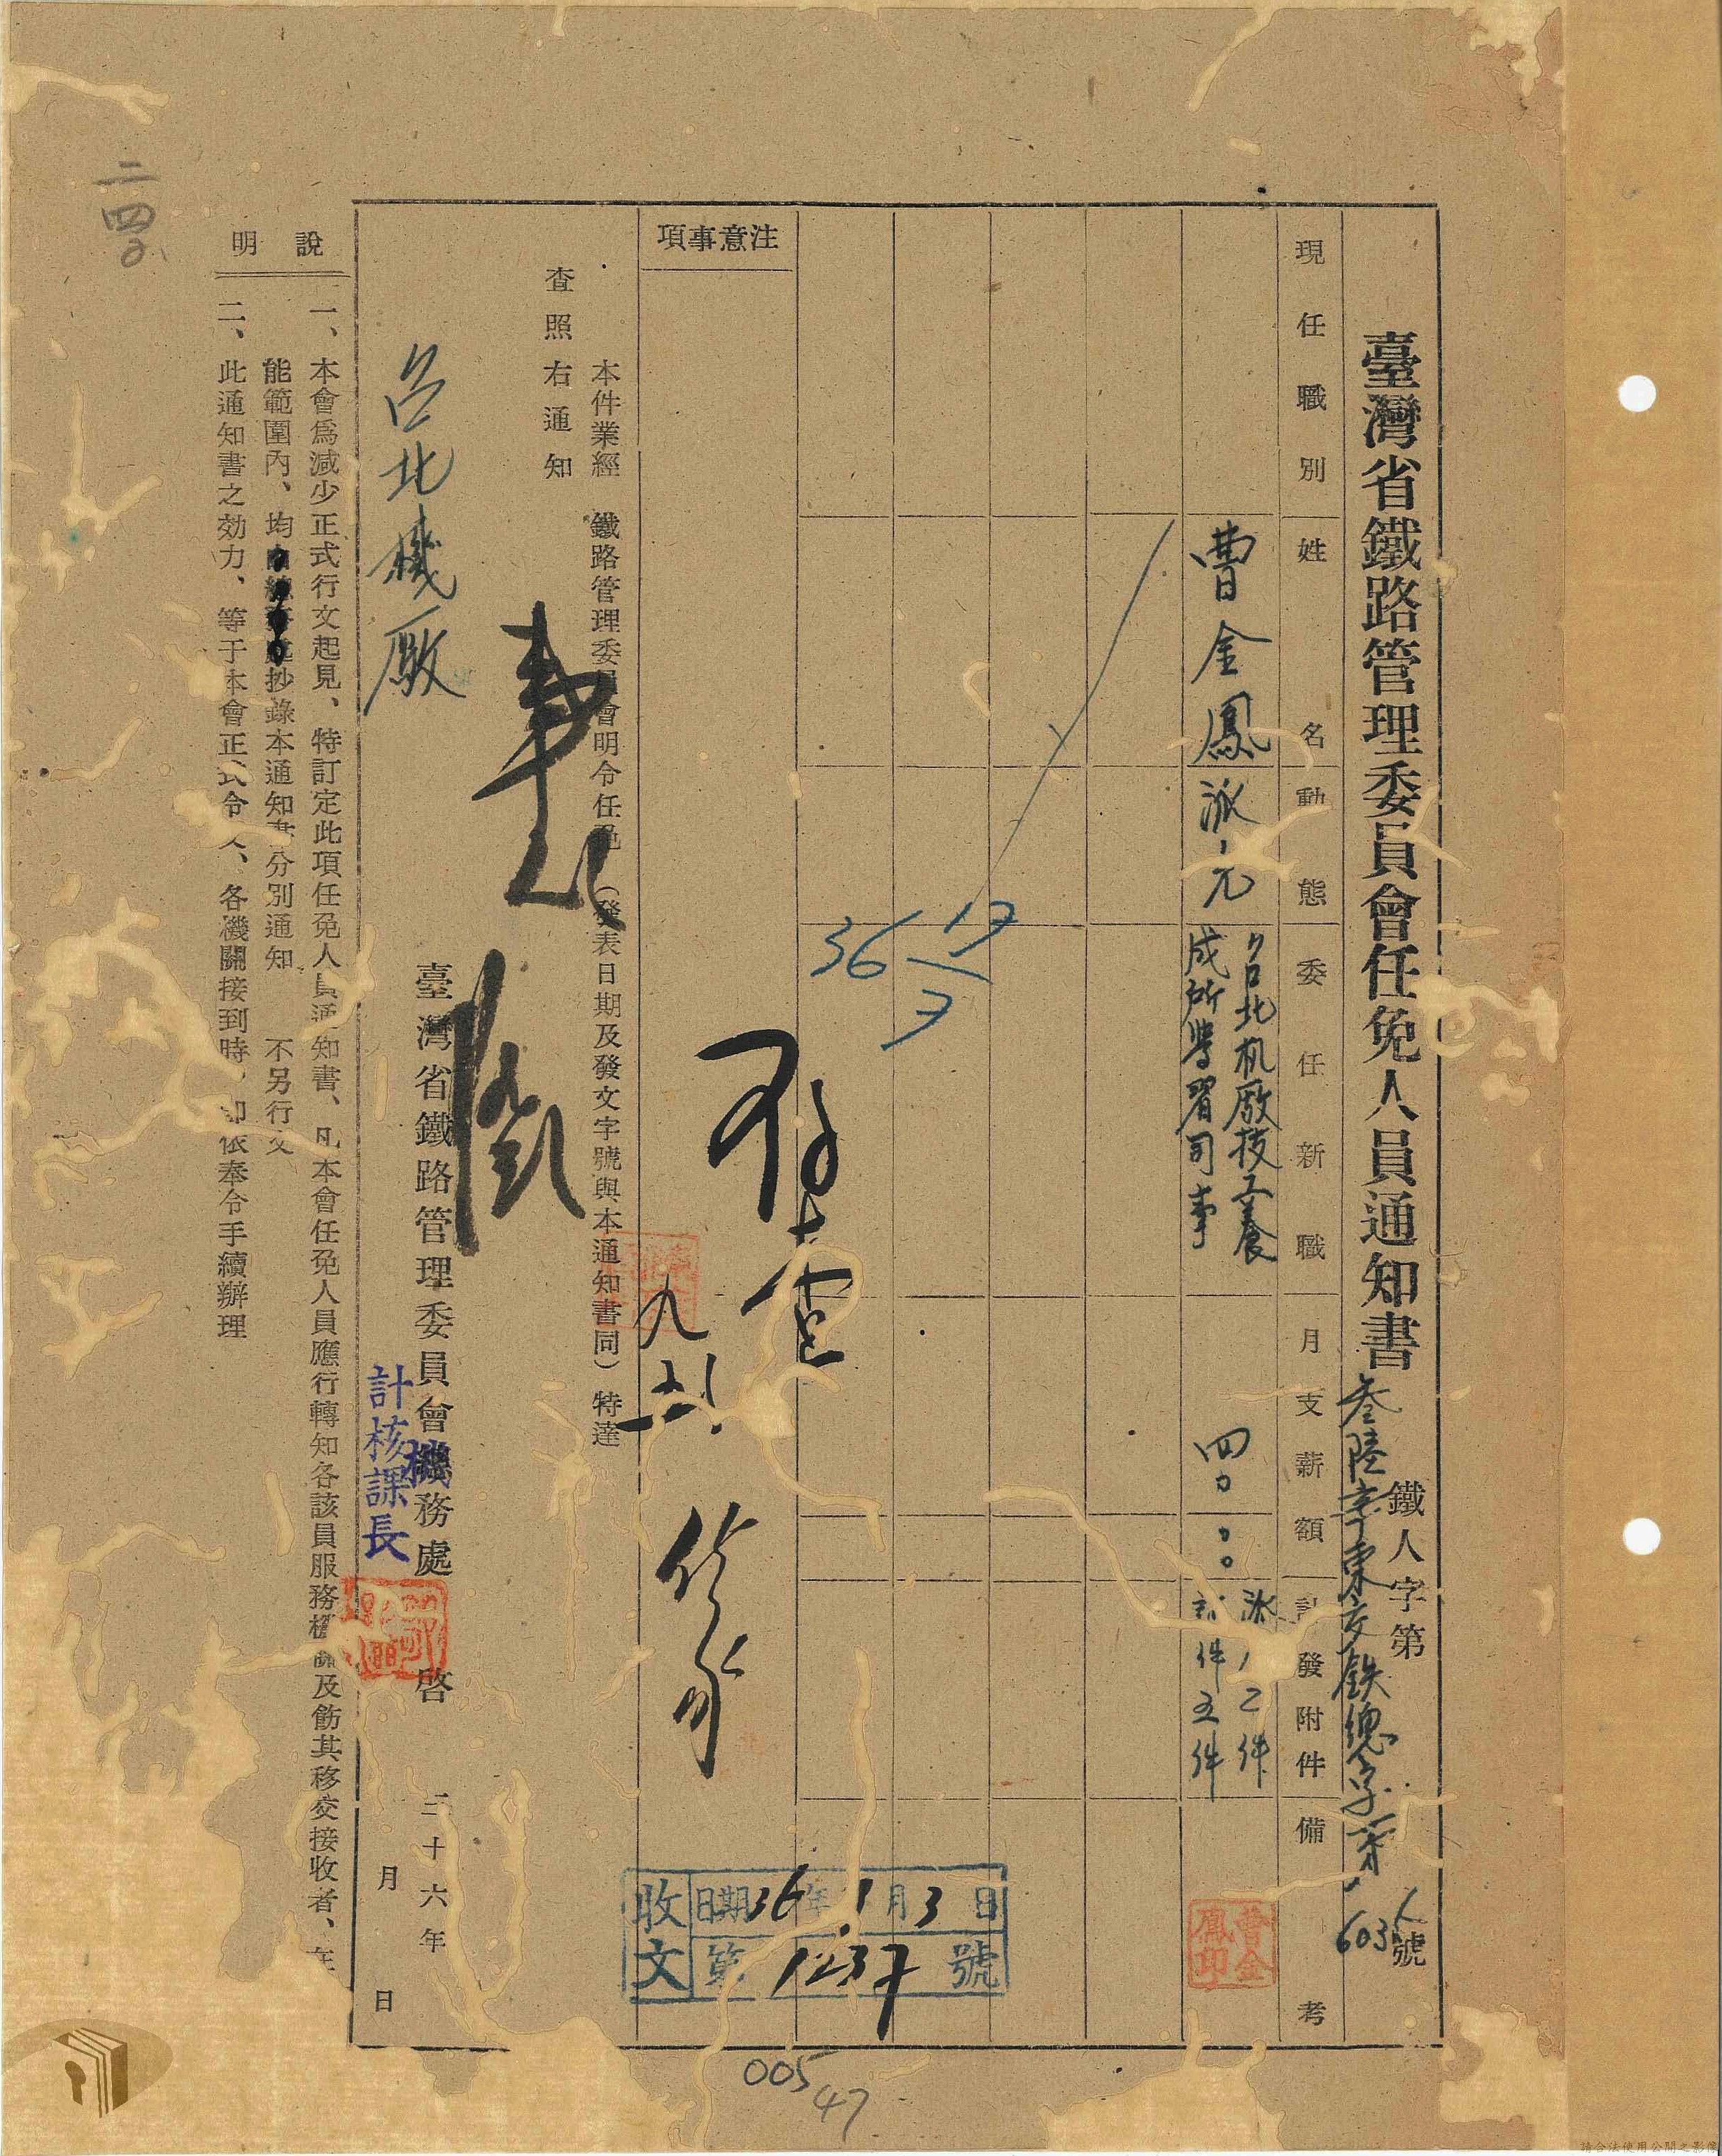 臺灣省鐵路管理委員會任免人員通知書
鐵人字第 號
叁陸 東交鉄總字第 603
現任職別
姓名
動態
委任新職
月支薪額
計發附件
備考
曹金鳳
派
台北机廠技工養
成所學習司事
四〇
件五件
曹金
鳳印
36 17/7
注意事項
存查
收文
日期36年 月3日
第1237號
本件業經 鐵路管理委員會明令任免(發表日期及發文字號與本通知書同)特達
查照右通知
台北機廠
臺灣省鐵路管理委員會機務處 啓 三十六年 月 日
計核課長
說明
一、本會爲減少正式行文起見、特訂定此項任免人員通知書、凡本會任免人員應行轉知各該員服務機關及飭其移交接收者、在
能範圍內、均 抄錄本通知書分別通知 不另行文
二、此通知書之効力、等于本會正式令文、各機關接到時,卽依奉令手續辦理
二四
005
47